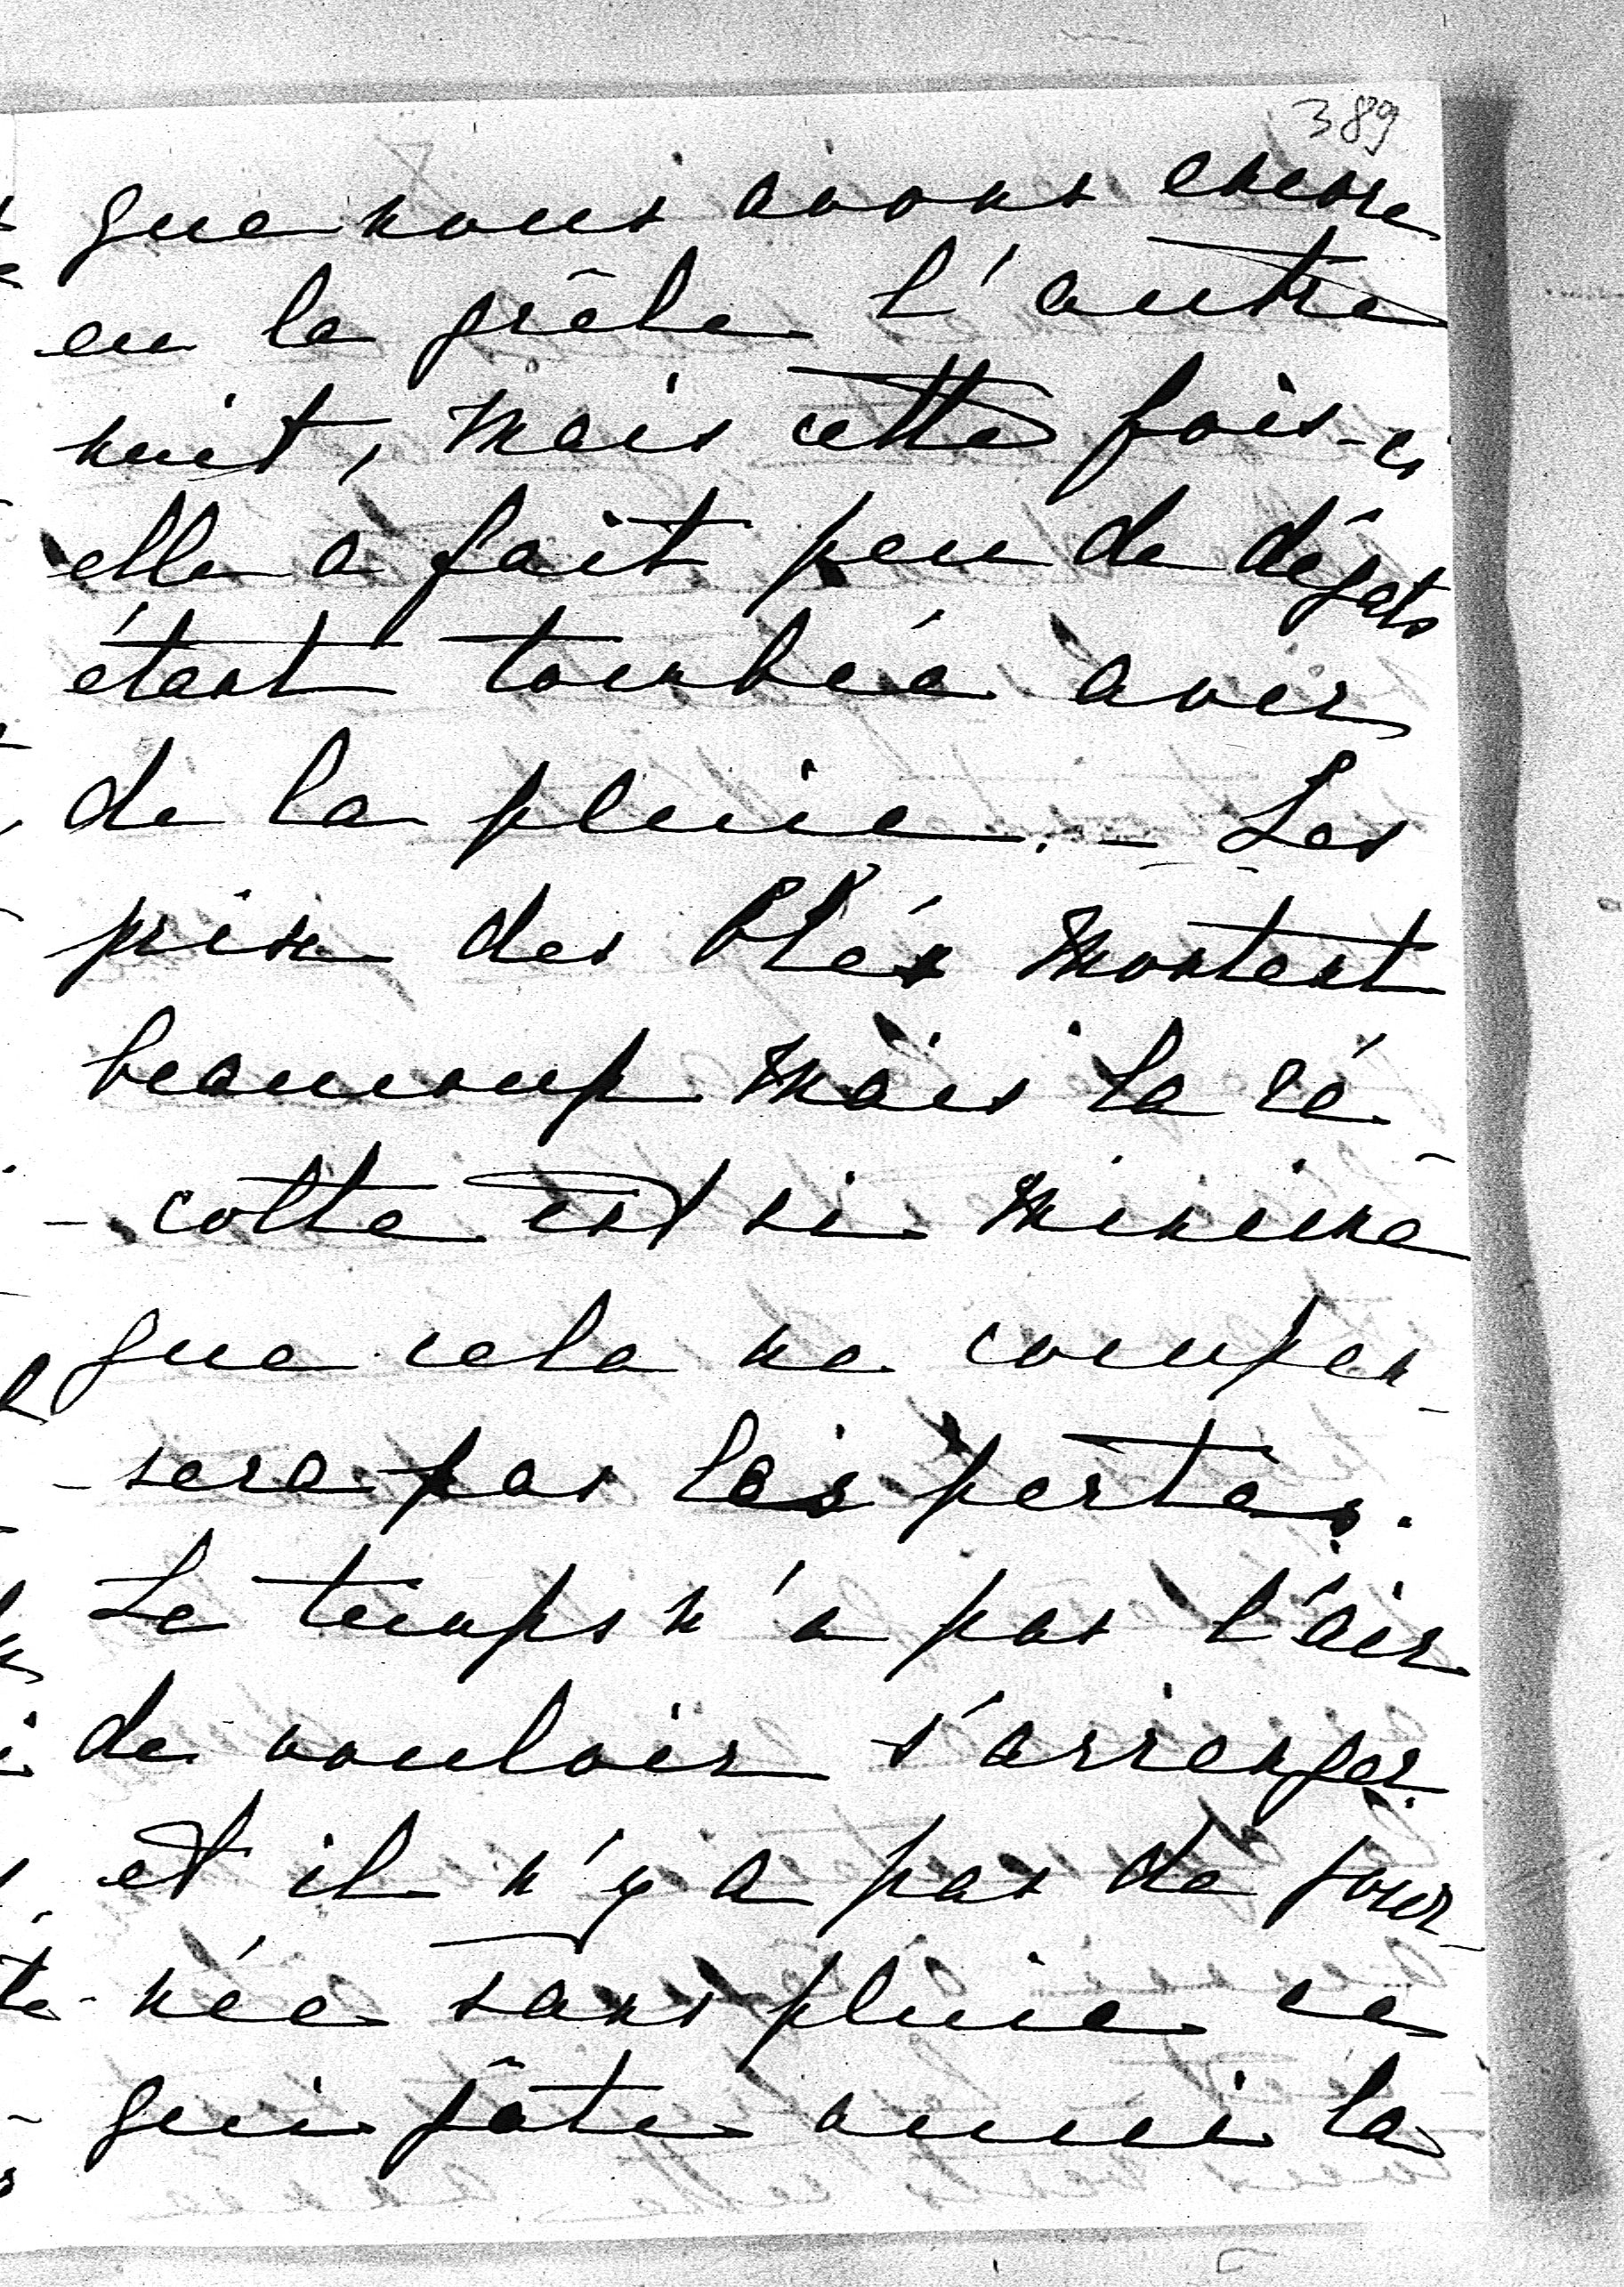 389
que nous avons encore
eu la grêle l'autre
nuit, mais cette fois-ci
elle a fait peu de dégats
étant tombée avec
de la pluie. - Les
prix des blés montent
beaucoup mais la ré-
-colte est si minime
que cela ne compen-
-sera pas les pertes.
Le temps n'a pas l'air
de vouloir s'arranger
et il n'y a pas de jour-
-née sans pluie ce
qui gâte aussi la